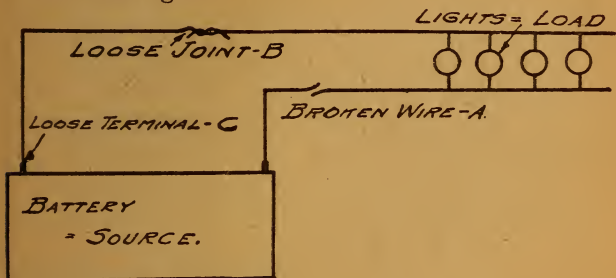 LIGHTS = LOAD
LOOSE JOINT-B
BROKEN WIRE-A.
LOOSE TERMINAL-C
BATTERY
= SOURCE.